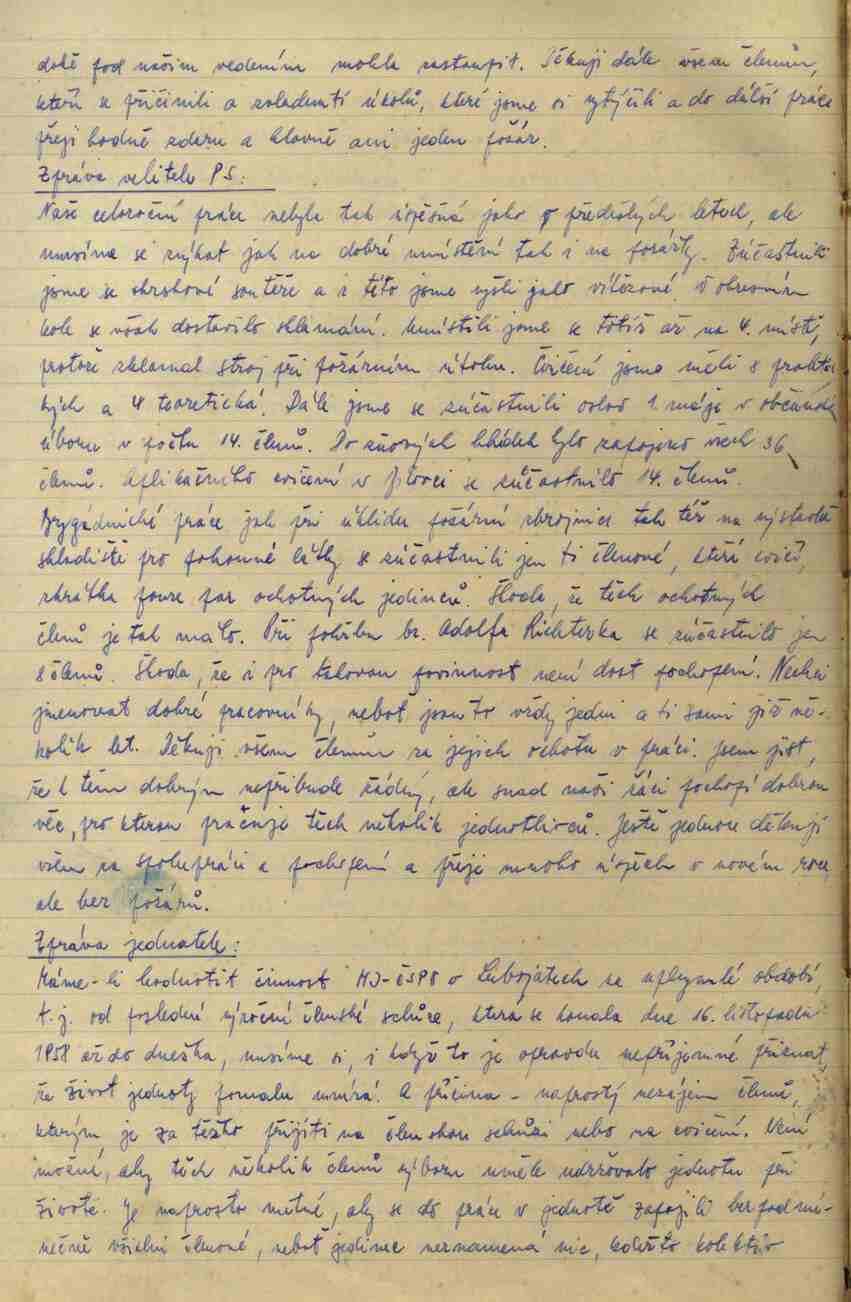 době pod našim vedením mohla zastoupit. Děkuji dále všem členům,
kteří se přičinili o zvládnutí úkolů, které jsme si vytýčili a do další práce
přeji hodně zdaru a hlavně ani jeden požár.
Zpráva velitele PS:
Naše celoroční práce nebyla tak úspěšná jako v předešlých letech, ale
musíme si zvýkat jak na dobré umístění tak i na porážky. Zúčastnili
jsme se okrskové soutěže a i této jsme vyšli jako vítězové. V okresním
kole se však dostavilo sklamání. Umístili jsme se totiž až na 4. místě,
protože zklamal stroj při požárním útoku. Cvičení jsme měli 8 prakti-
kých a 4 teoretická. Dále jsme se zúčastnili oslav 1. máje v občanském
úboru v počtu 14. členů. Do žňových hlídek bylo zapojeno všech 36
členů. Aplikačního cvičení v Bílovci se zúčastnilo 14. členů.
Brygádnické práce jak při úklidu požární zbrojnice tak též na výstavbě
skladiště pro pohonné látky se zúčastnili jen ti členové, kteří cvičí,
zkrátka pouze par ochotných jedinců. Škoda, že těch ochotných
členů je tak málo. Při pohřbu br. Adolfa Richterka se zúčástnilo jen
8 členů. Škoda, že i pro takovou povinnost není dost pochopení. Nechci
jmenovat dobré pracovníky, neboť jsou to vždy jedni a ti sami již ně-
kolik let. Děkuji všem členům za jejich ochotu v práci. Jsem jist,
že k těm dobrým nepřibude žádný, ale snad naši žáci pochopí dobrou
věc, pro kterou pracuje těch několik jednotlivců. Ještě jednou děkuji
všem za spolupráci a pochopení a přeji mnoho úspěch v novém roce
ale bez požárů.
Zpráva jednatele:
Máme-li hodnotit činnost MJ-ČSPO v Lubojátech za uplynulé období,
t.j. od poslední výroční členské schůze, která se konala dne 16. listopadu
1958 až do dneška, musíme si, i když to je opravdu nepříjemné přiznat,
že život jednoty pomalu umírá. A příčina - naprostý nezájem členů,
kterým je za těžko přijíti na členskou schůzi nebo na cvičení. Není
možné, aby těch několik členů výboru uměle udržovalo jednotu při
životě. Je naprosto nutné, aby se do práce v jednotě zapojili bezpodmí-
nečně všichni členové, neboť jedinec neznamená nic, kdežto kolektiv